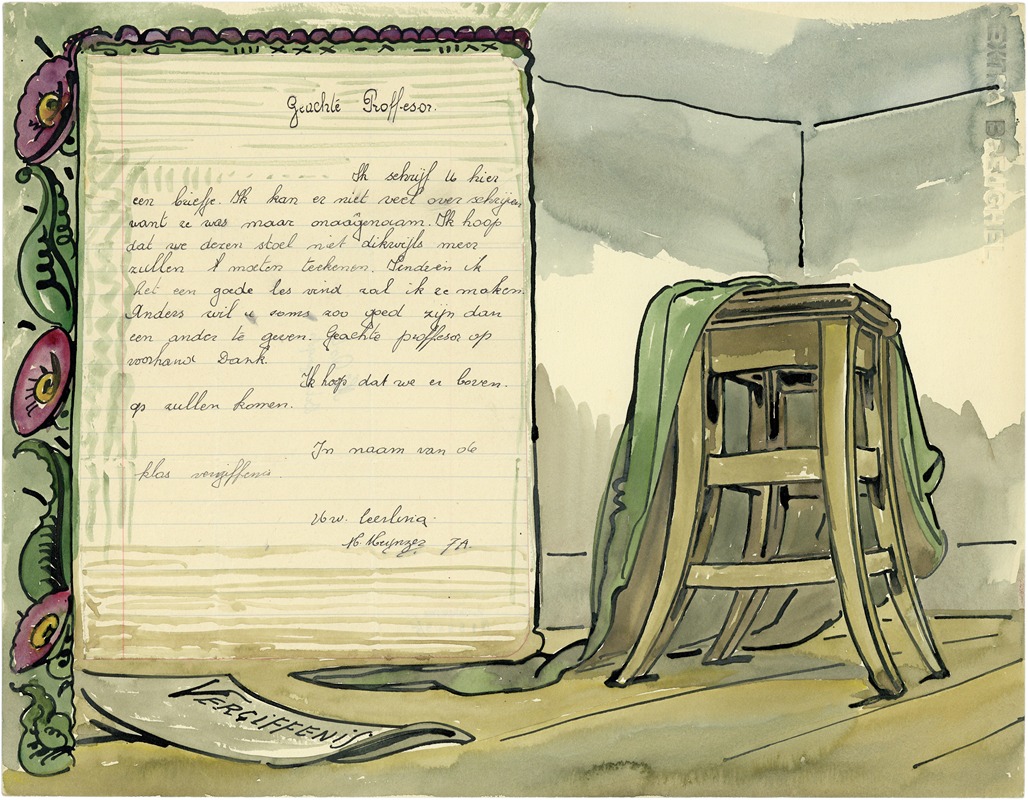 Geachte Proffesor.
Ik schrijf U hier
een briefje. Ik kan er niet veel over schrijven
want ze was maar onaangenaam. Ik hoop
dat we dezen stoel niet dikwijls meer
zullen moeten teekenen. Indien ik
het een goede les vind zal ik ze maken.
Anders wil u soms zoo goed zijn dan
een ander te geven. Geachte proffesor op
voorhand Dank.
Ik hoop dat we er boven-
op zullen komen.
In naam van de
klas vergiffenis.
Uw. leerling.
7A.
VERGIFFENIS